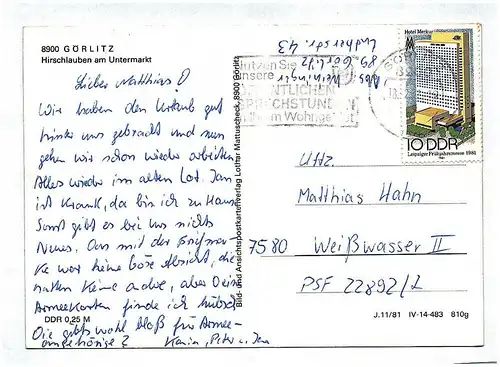 8900 GÖRLITZ
Hirschlauben am Untermarkt
Lieber Matthias!
Wir haben den Urlaub gut
hinter uns gebracht und nun
gehen wir schon wieder arbeiten
Alles wieder im alten Lot. Jan
ist Krank, da bin ich zu Hause
Sonst gibt es bei uns nichts
Neues. Das mit der Briefmar
ke war keine böse Absicht, die
hatten Keine andre, aber Deine
Armeekarten finde ich hübsch
Die gibts wohl bloß für Armee-
angehörige? Karin, Peter u. Jan
DDR 0,25 M
Bild- und Ansichtspostkartenverlag Lothar Manuscheck, 8900 Görlitz
Abs. Meininger
89 Görlitz
Lutherstr. 43
Nutzen Sie
unsere
ÖFFENTLICHEN
SPRECHSTUNDEN
in Ihrem Wohngebiet
Hotel Merkur
10 DDR
Leipziger Frühjahrsmesse 1981
Uffz.
Matthias Hahn
7580 Weißwasser II
PSF 22892/L
J.11/81 IV-14-483 810g